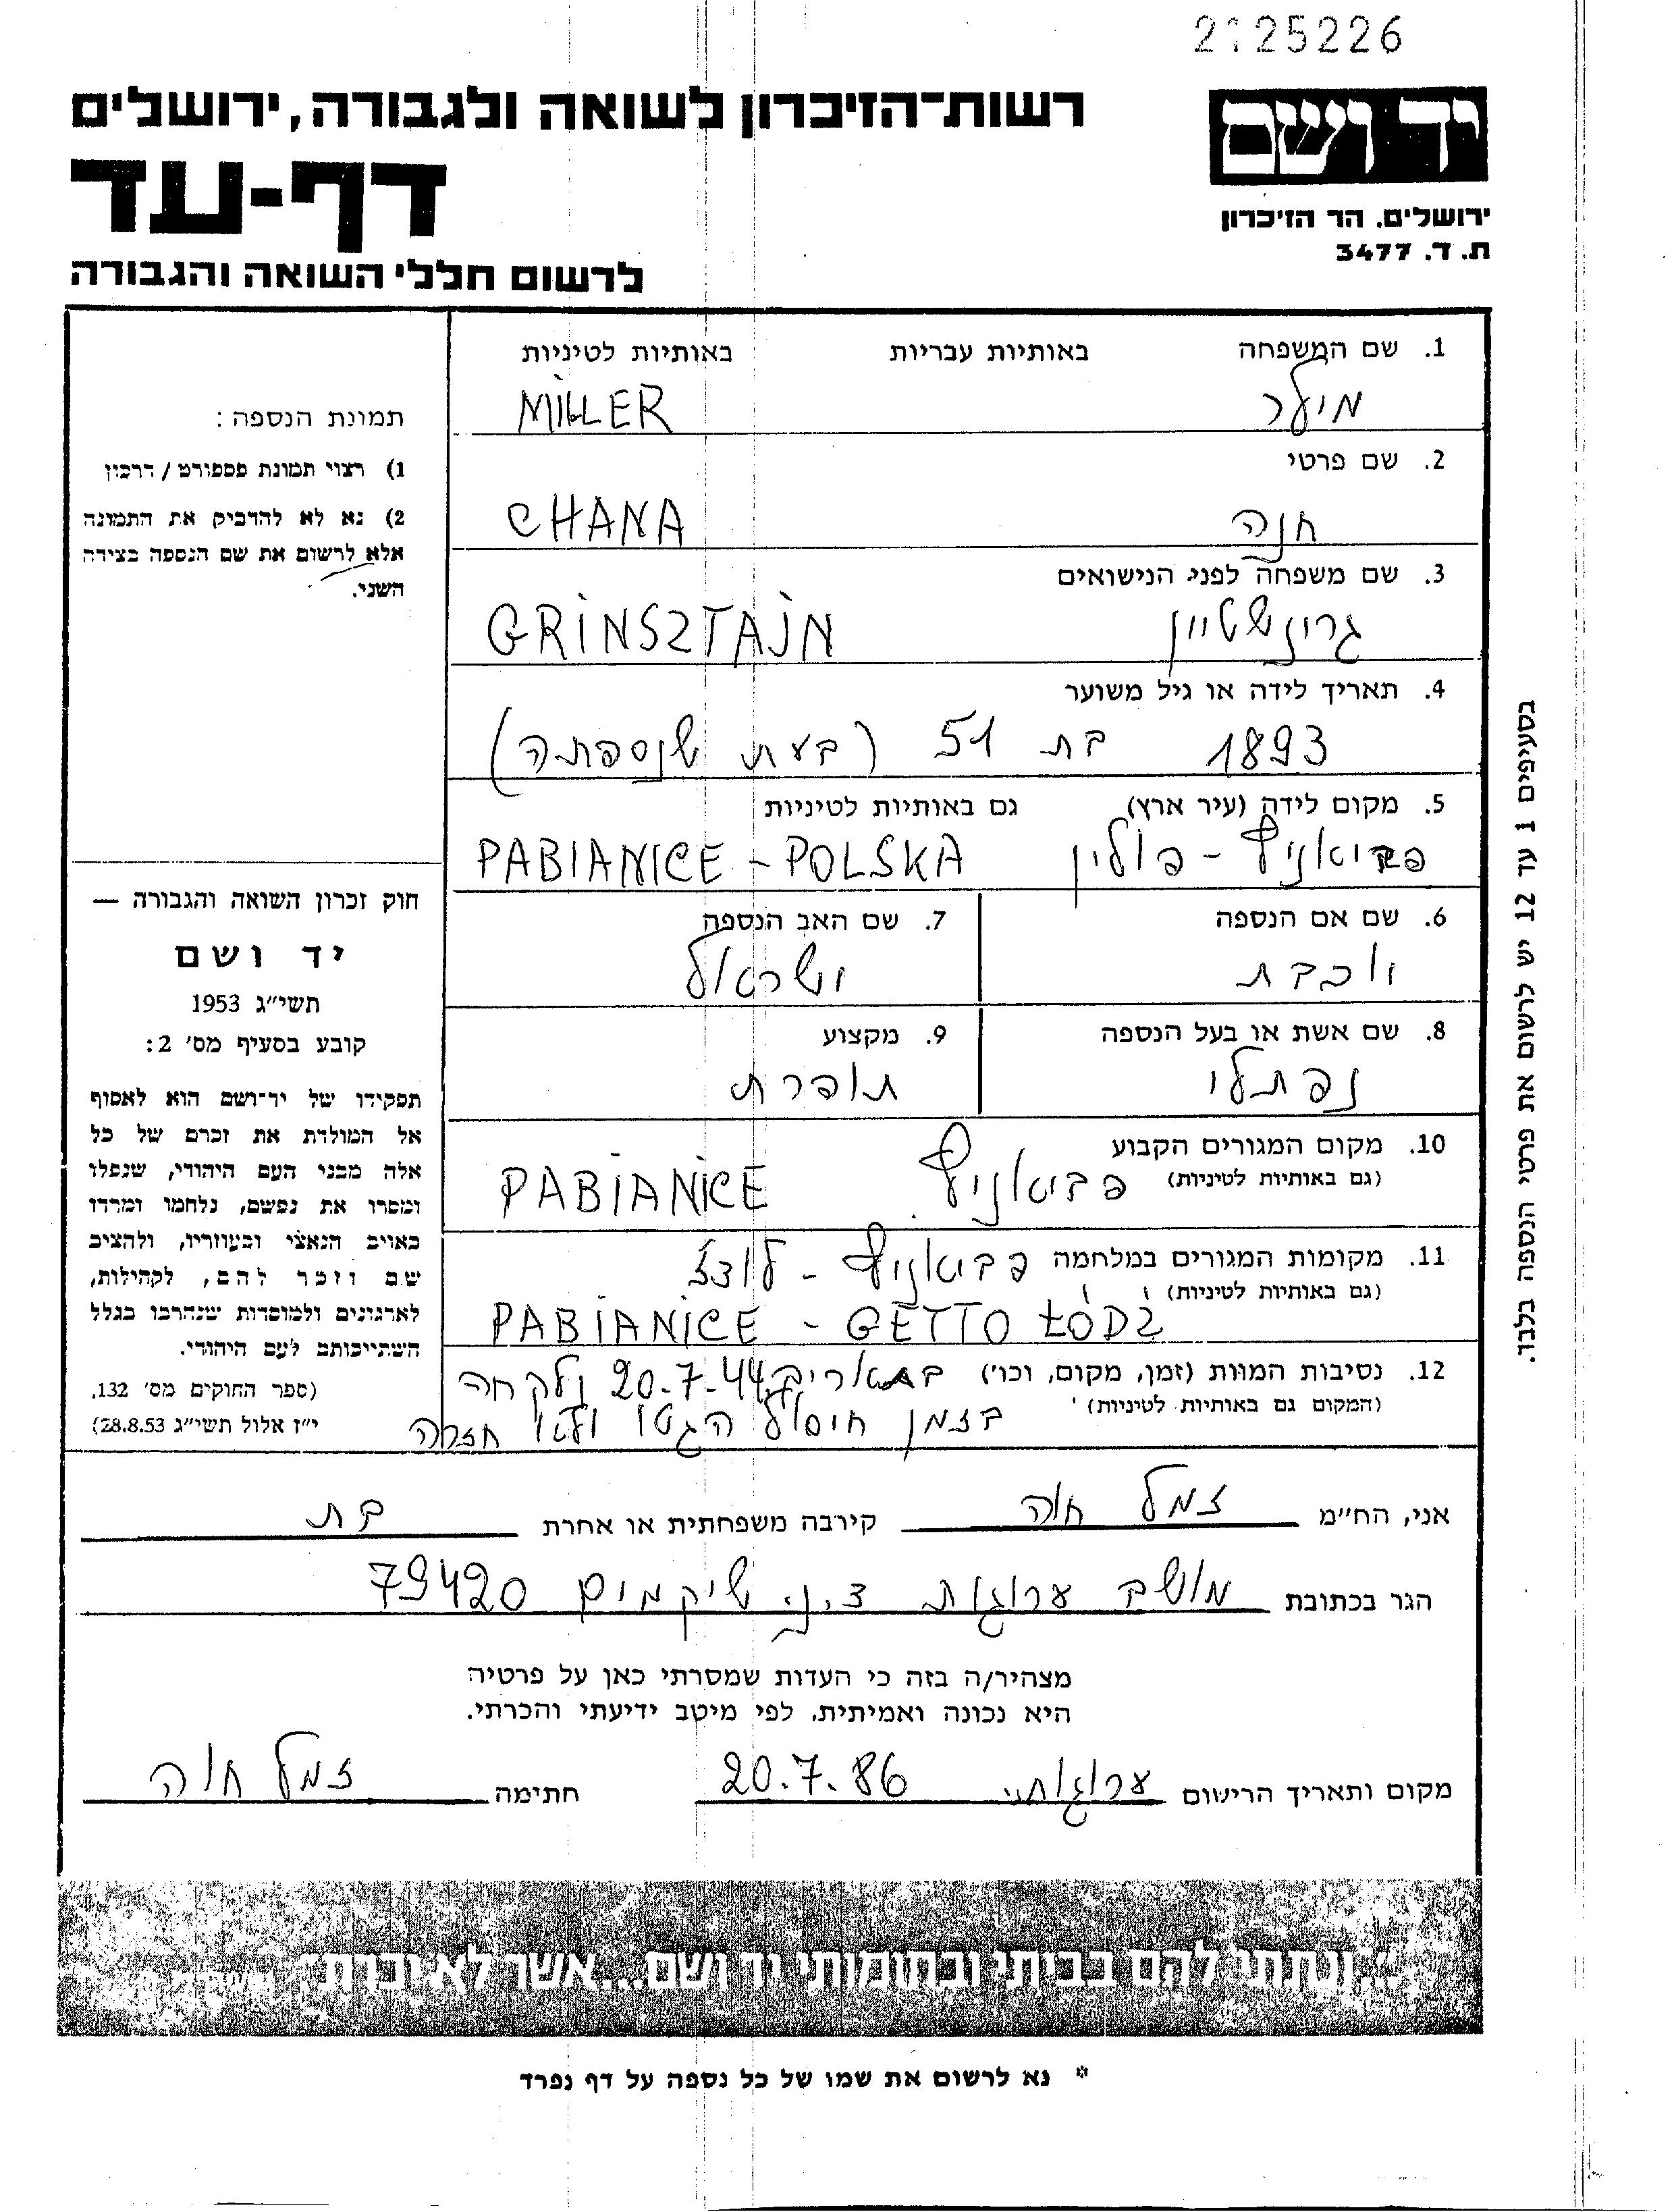 2125226
יד ושם
ירושלים, הר הזיכרון
ת. ד. 3477
רשות־הזיכרון לשואה ולגבורה, ירושלים
דף-עד
לרשום חללי השואה והגבורה
1. שם המשפחה באותיות עבריות באותיות לטיניות
מילר MILLER
2. שם פרטי
חנה CHANA
3. שם משפחה לפני הנישואים
גרינשטיין GRINSZTAJN
4. תאריך לידה או גיל משוער
1893 בת 51 (בעת שנספתה)
5. מקום לידה (עיר ארץ) גם באותיות לטיניות
פביאניץ - פולין PABIANICE - POLSKA
6. שם אם הנספה 7. שם האב הנספה
יוכבת ישראל
8. שם אשת או בעל הנספה 9. מקצוע
נפתלי תופרת
10. מקום המגורים הקבוע
(גם באותיות לטיניות) פביאניץ PABIANICE
11. מקומות המגורים במלחמה פביאניץ - לודז
(גם באותיות לטיניות)
PABIANICE - GETTO ŁÓDŹ
12. נסיבות המוות (זמן, מקום, וכו') בתאריך 20.7.44 נלקחה
(המקום גם באותיות לטיניות) בזמן חיסול הגטו ולא חזרה
תמונת הנספה:
1) רצוי תמונת פספורט / דרכון
2) נא לא להדביק את התמונה
אלא לרשום את שם הנספה בצידה
השני.
חוק זכרון השואה והגבורה —
יד ושם
תשי״ג 1953
קובע בסעיף מס׳ 2:
תפקידו של יד־ושם הוא לאסוף
אל המולדת את זכרם של כל
אלה מבני העם היהודי, שנפלו
ומסרו את נפשם, נלחמו ומרדו
באויב הנאצי ובעוזריו, ולהציב
שם וזכר להם, לקהילות,
לארגונים ולמוסדות שנחרבו בגלל
השתייכותם לעם היהודי.
(ספר החוקים מס׳ 132,
י״ז אלול תשי״ג 28.8.53)
בסעיפים 1 עד 12 יש לרשום את פרטי הנספה בלבד.
אני, הח״מ זמל חוה קירבה משפחתית או אחרת בת
הגר בכתובת מושב ערוגות ד.נ. שיקמים 79420
מצהיר/ה בזה כי העדות שמסרתי כאן על פרטיה
היא נכונה ואמיתית, לפי מיטב ידיעתי והכרתי.
מקום ותאריך הרישום ערוגות 20.7.86 חתימה זמל חוה
״...ונתתי להם בביתי ובחומותי יד ושם...אשר לא יכרת״
* נא לרשום את שמו של כל נספה על דף נפרד